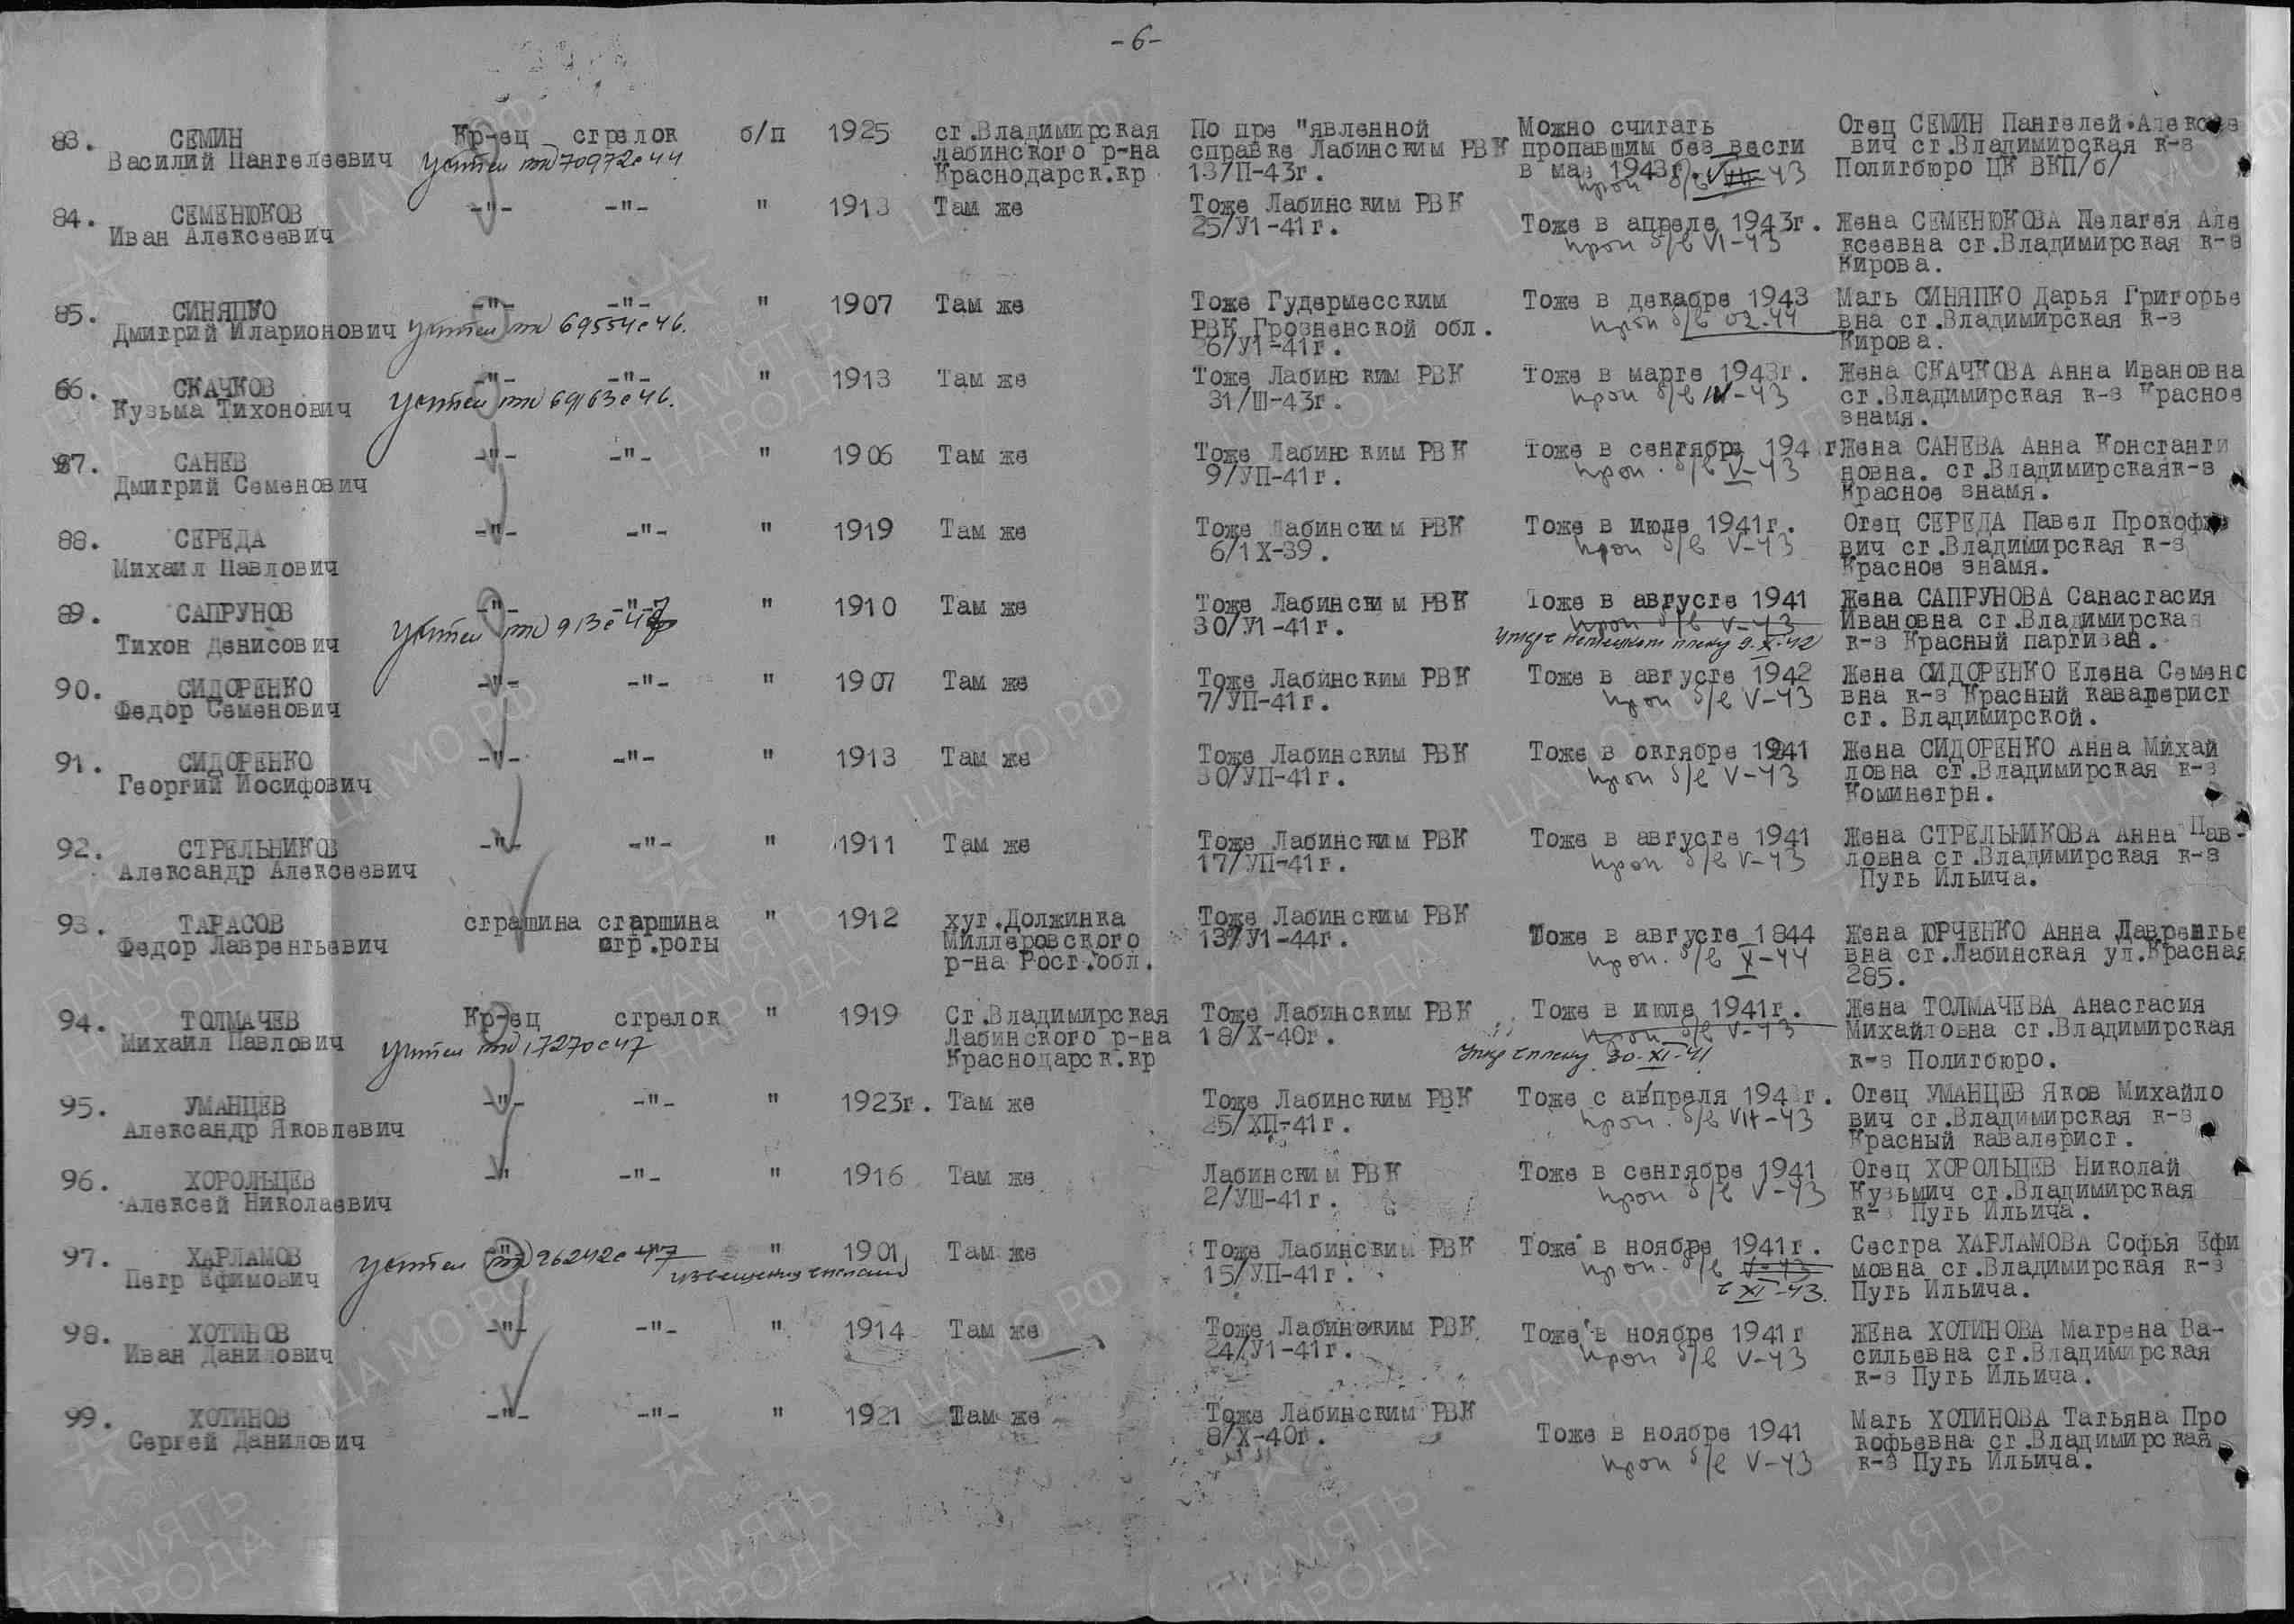 -6-
83. СЕМИН Кр-ец стрелок б/п 1925 ст.Владимирская По пре "явленной Можно считать Отец СЕМИН Пантелей Алексее
Василий Пантелеевич Учтен 70972с44 Лабинского р-на справке Лабинским РВК пропавшим без вести вич ст.Владимирская к-з
Краснодарск.кр 13/П-43г. в мае 1943г. Политбюро ЦК ВКП/б/
проп б/в VIII-43
84. СЕМЕНЮКОВ -"- -"- " 1913 Там же Тоже Лабинским РВК Тоже в апреле 1943г. Жена СЕМЕНЮКОВА Пелагея Але
Иван Алексеевич 25/У1-41г. проп б/в VI-43 ксеевна ст.Владимирская к-з
Кирова.
85. СИНЯПКО -"- -"- " 1907 Там же Тоже Гудермесским Тоже в декабре 1943 Мать СИНЯПКО Дарья Григорье
Дмитрий Иларионович Учтен 69554с46. РВК Грозненской обл. проп б/в 02.44 вна ст.Владимирская к-з
26/У1-41г. Кирова.
66. СКАЧКОВ -"- -"- " 1913 Там же Тоже Лабинс ким РВК Тоже в марте 1943г. Жена СКАЧКОВА Анна Ивановна
Кузьма Тихонович Учтен 69163с46. 31/Ш-43г. проп б/в -43 ст.Владимирская к-з Красное
знамя.
87. САНЕВ -"- -"- " 1906 Там же Тоже Лабинс ким РВК Тоже в сентябре 194 г Жена САНЕВА Анна Константи
Дмитрий Семенович 9/УП-41г. проп. б/в V-43 новна. ст.Владимирскаяк-з
Красное знамя.
88. СЕРЕДА -"- -"- " 1919 Там же Тоже Лабинским РВК Тоже в июле 1941г. Отец СЕРЕДА Павел Прокофье
Михаил Павлович 6/1Х-39. проп б/в V-43 вич ст.Владимирская к-з
Красное знамя.
89. САПРУНОВ -"- -"- " 1910 Там же Тоже Лабинским РВК Тоже в августе 1941 Жена САПРУНОВА Санастасия
Тихон Денисович Учтен 913с 30/У1-41г. проп б/в V-43 Ивановна ст.Владимирская
плену 9.X.42 к-з Красный партизан.
90. СИДОРЕНКО -"- -"- " 1907 Там же Тоже Лабинским РВК Тоже в августе 1942 Жена СИДОРЕНКО Елена Семено
Федор Семенович 7/УП-41г. проп б/в V-43 вна к-з Красный кавалерист
ст. Владимирской.
91. СИДОРЕНКО -"- -"- " 1913 Там же Тоже Лабинским РВК Тоже в октябре 1941 Жена СИДОРЕНКО Анна Михай
Георгий Иосифович 30/УП-41г. проп б/в V-43 ловна ст.Владимирская к-з
Коминетрн.
92. СТРЕЛЬНИКОВ -"- -"- " 1911 Там же Тоже Лабинским РВК Тоже в августе 1941 Жена СТРЕЛЬНИКОВА Анна Пав-
Александр Алексеевич 17/УП-41г. проп б/в V-43 ловна ст.Владимирская к-з
Путь Ильича.
93. ТАРАСОВ страшина старшина " 1912 хут.Должинка Тоже Лабинским РВК Тоже в августе 1844 Жена ЮРЧЕНКО Анна Лаврентье
Федор Лаврентьевич стр.роты Миллеровского 13/У1-44г. проп. б/в X-44 вна ст.Лабинская ул.Красная
р-на Рост.обл. 285.
94. ТОЛМАЧЕВ Кр-ец стрелок " 1919 Ст.Владимирская Тоже Лабинским РВК Тоже в июле 1941г. Жена ТОЛМАЧЕВА Анастасия
Михаил Павлович Учтен 17270с47 Лабинского р-на 18/Х-40г. проп б/в V-43 Михайловна ст.Владимирская
Краснодарск.кр плену 30-XI-41 к-з Политбюро.
95. УМАНЦЕВ -"- -"- " 1923г. Там же Тоже Лабинским РВК Тоже с апреля 194 г. Отец УМАНЦЕВ Яков Михайло
Александр Яковлевич 25/ХП-41г. проп. б/в VII-43 вич ст.Владимирская к-з
Красный кавалерист.
96. ХОРОЛЬЦЕВ -" -"- " 1916 Там же Лабинским РВК Тоже в сентябре 1941 Отец ХОРОЛЬЦЕВ Николай
Алексей Николаевич 2/УШ-41г. проп б/в V-43 Кузьмич ст.Владимирская
к-з Путь Ильича.
97. ХАРЛАМОВ Учтен 26242с47 " 1901 Там же Тоже Лабинским РВК Тоже в ноябре 1941г. Сестра ХАРЛАМОВА Софья Ефи
Петр Ефимович 15/УП-41г. проп. б/в V-43 мовна ст.Владимирская к-з
XI-43. Путь Ильича.
98. ХОТИНОВ -"- -"- " 1914 Там же Тоже Лабинским РВК Тоже в ноябре 1941г ЖЕна ХОТИНОВА Матрена Ва-
Иван Данилович 24/У1-41г. проп б/в V-43 сильевна ст.Владимирская
к-з Путь Ильича.
99. ХОТИНОВ -"- -"- " 1921 Там же Тоже Лабинским РВК Тоже в ноябре 1941 Мать ХОТИНОВА Татьяна Про
Сергей Данилович 8/Х-40г. проп б/в V-43 кофьевна ст.Владимирская
к-з Путь Ильича.